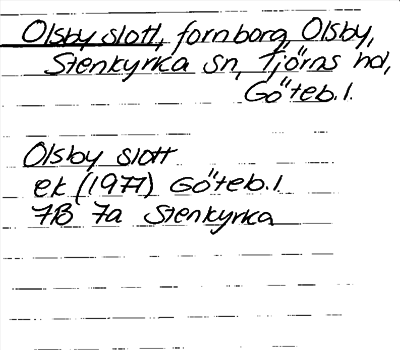 Olsby slott, fornborg, Olsby,
Stenkyrka sn, Tjörns hd,
Göteb. l.
Olsby slott
ek (1977) Göteb. l
7B 7a Stenkyrka